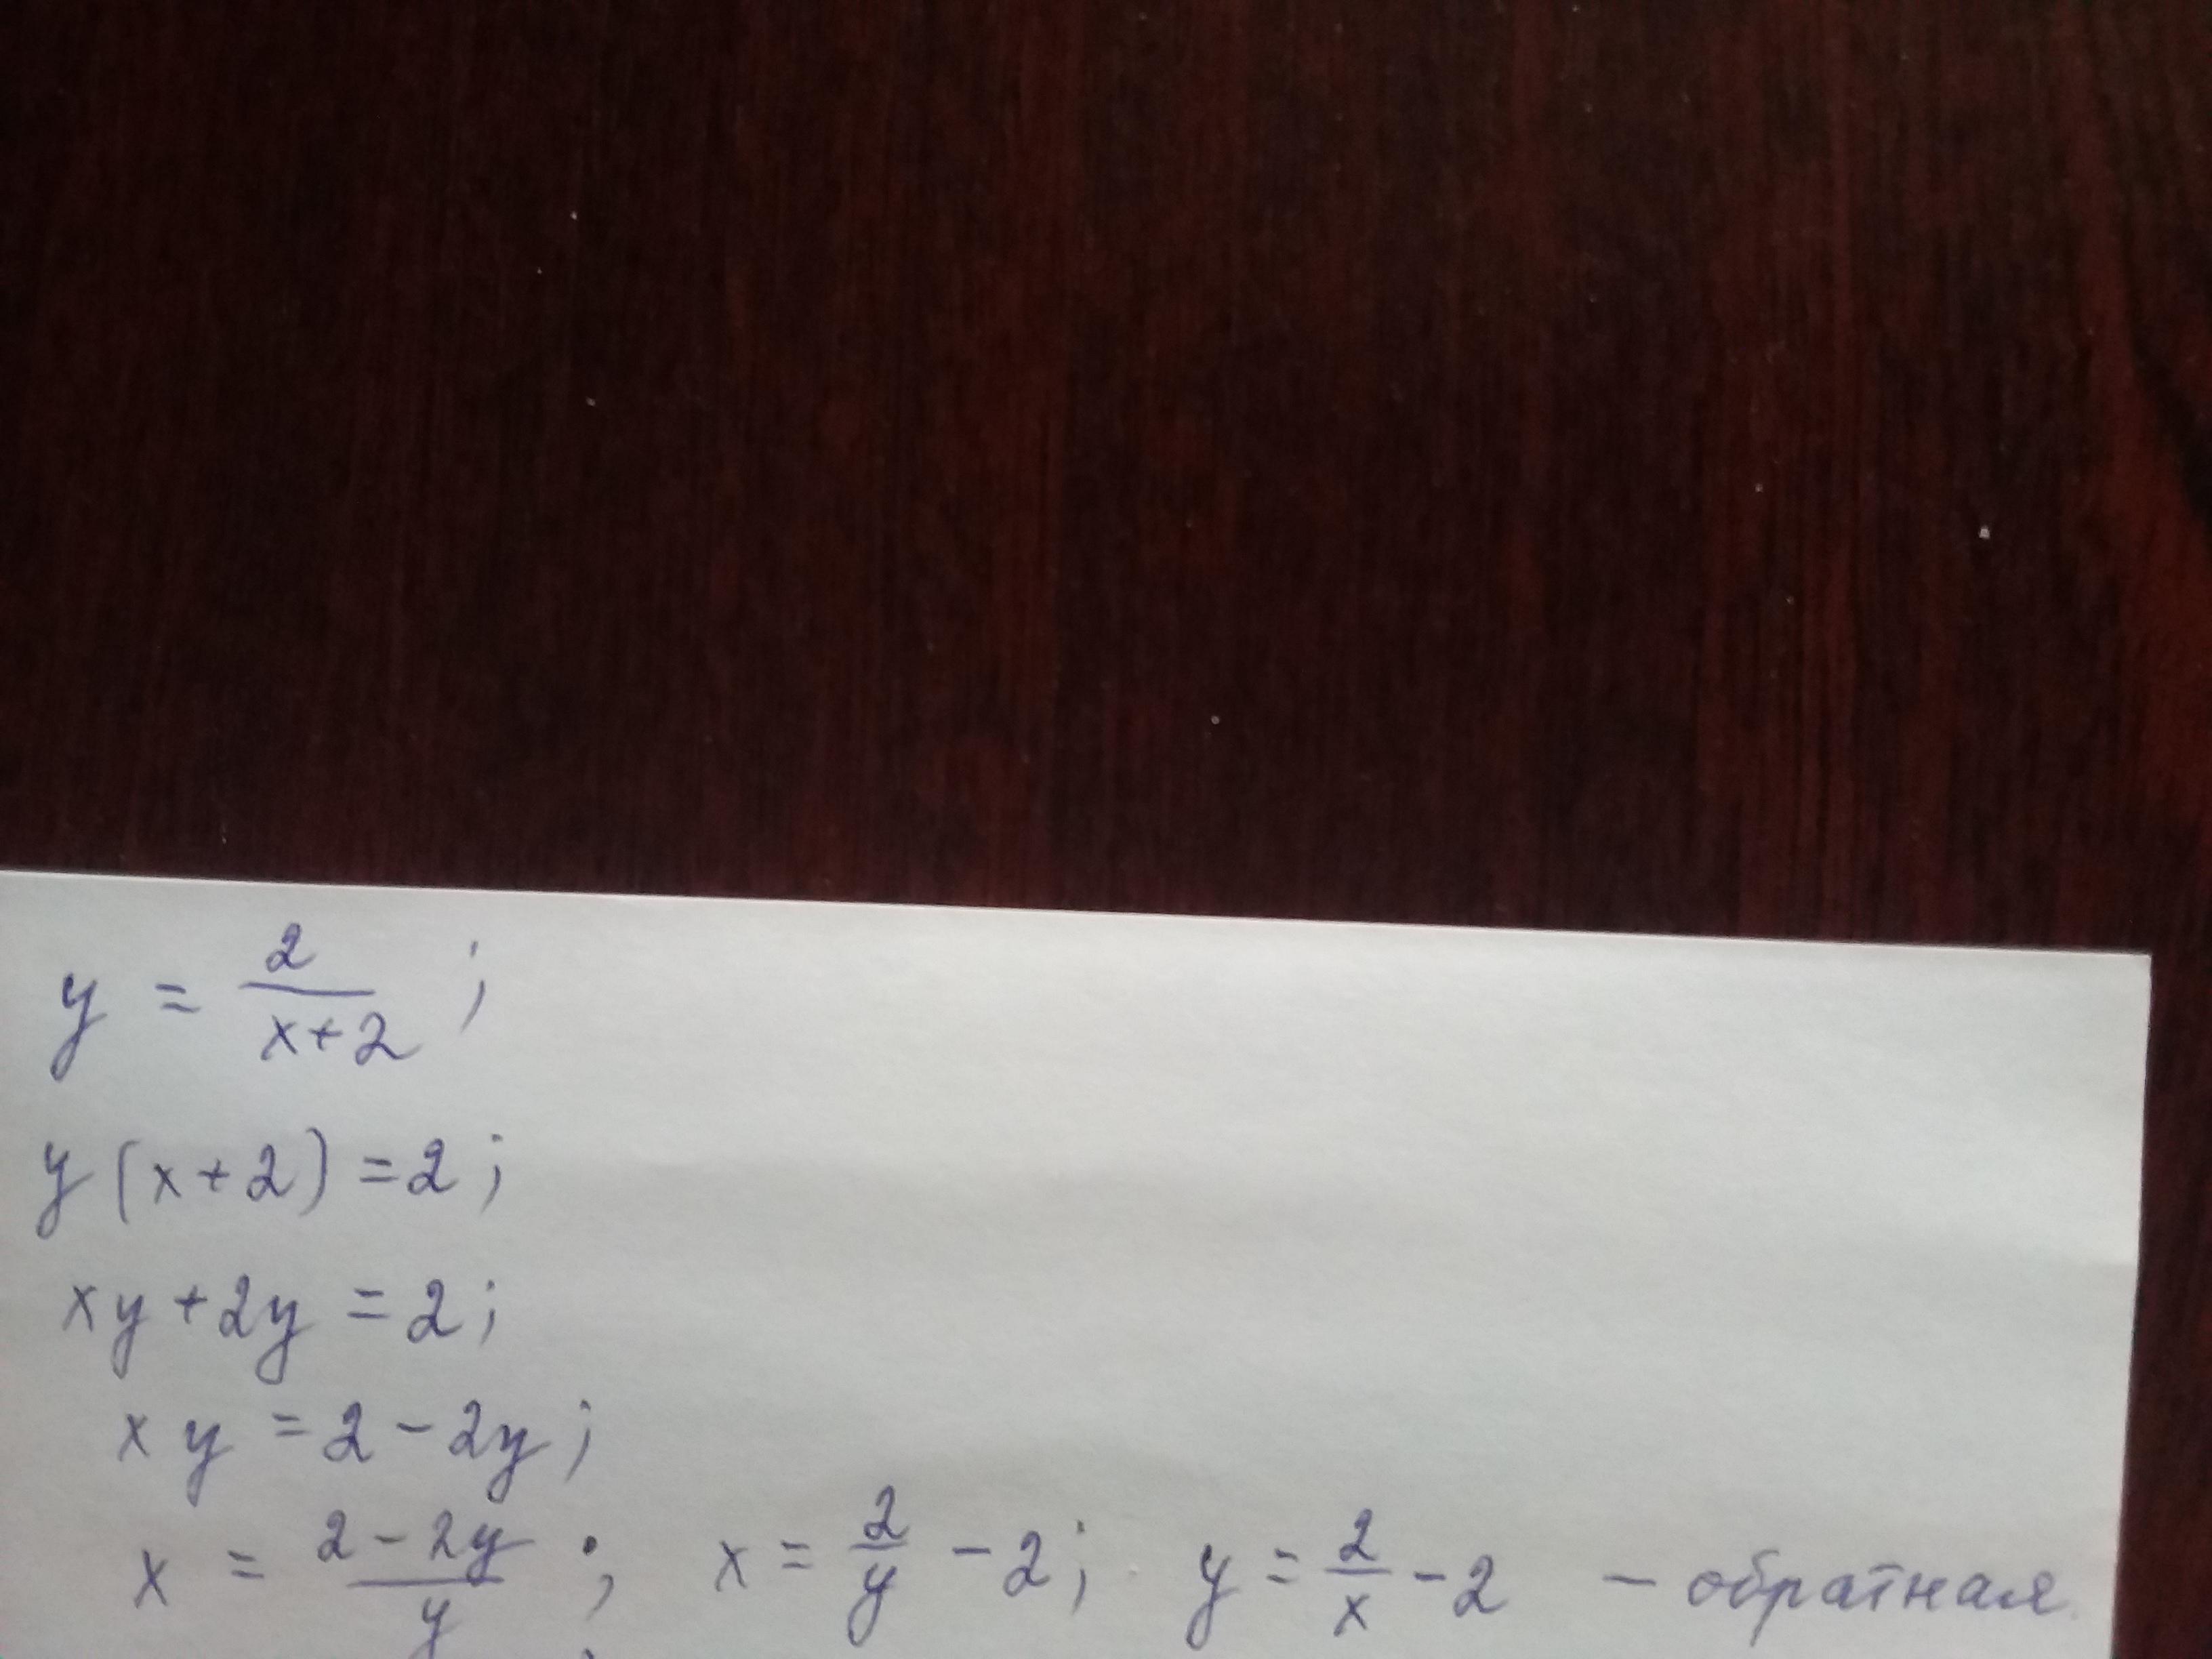 y = 2/(x+2) ;
y (x+2) = 2 ;
xy + 2y = 2 ;
xy = 2 - 2y ;
x = (2-2y)/y ; x = 2/y - 2 ; y = 2/x - 2 - обратная